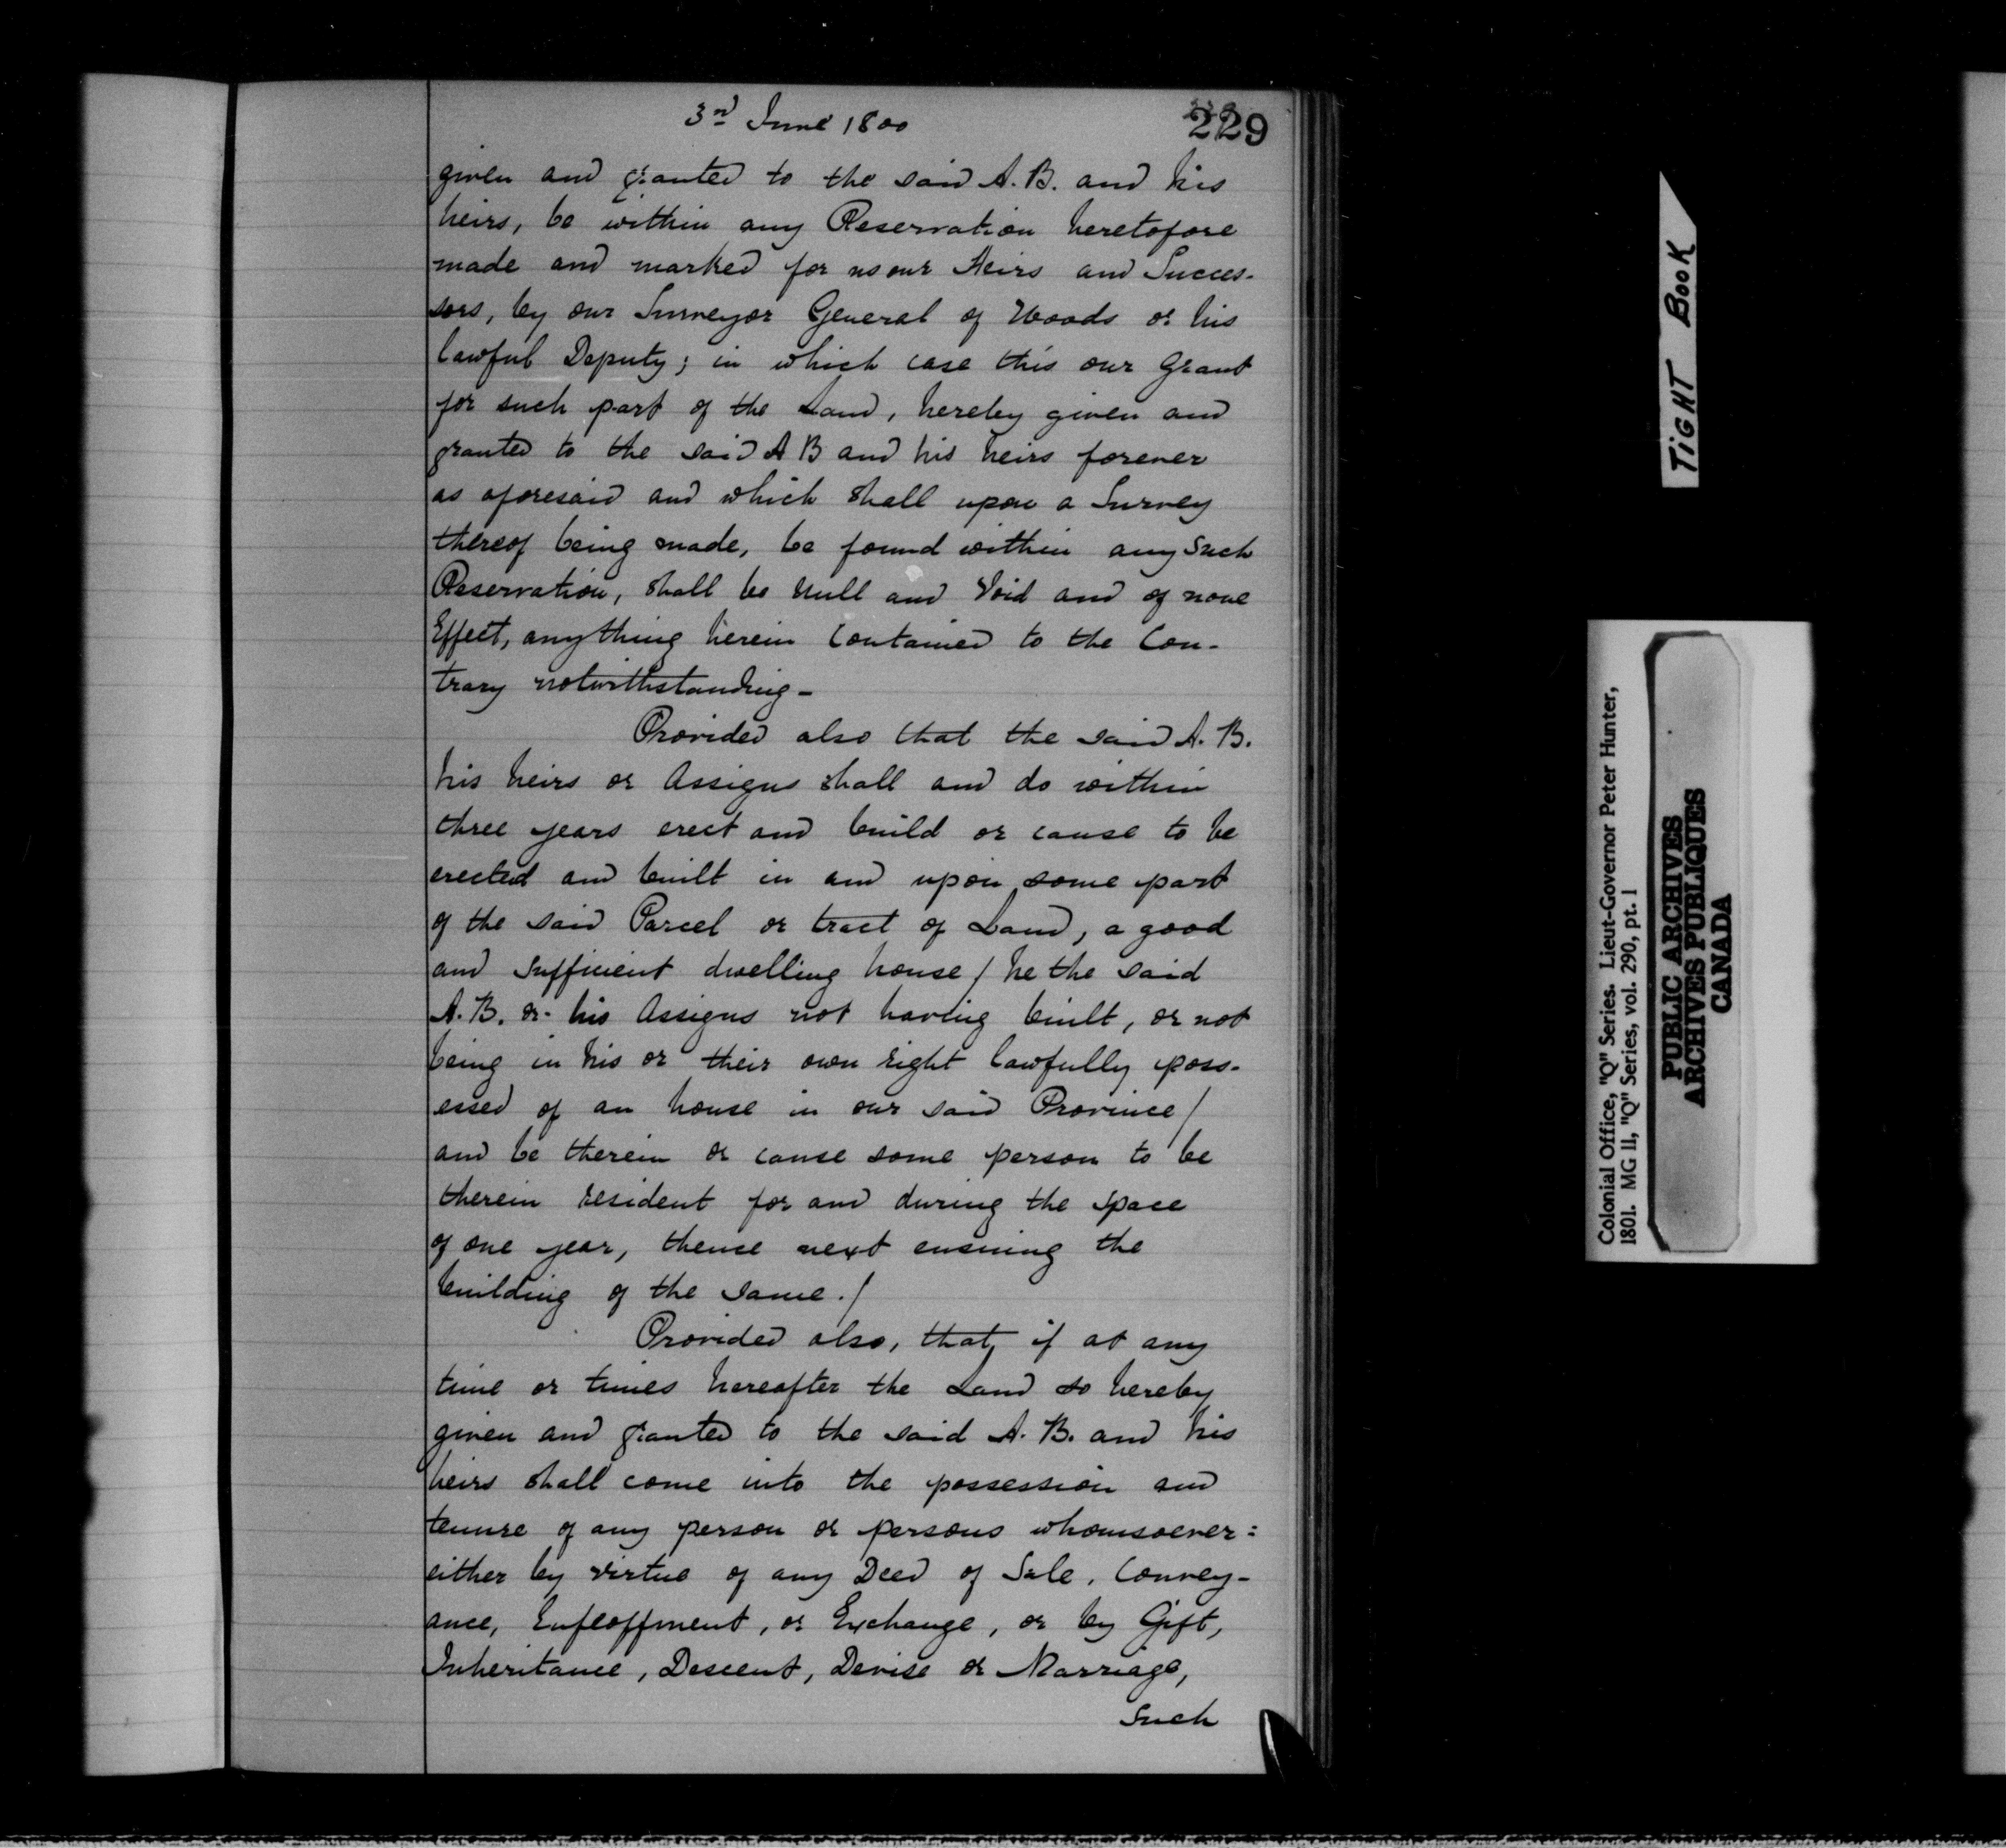 3rd June 1800
229
given and granted to the said A. B. and his
heirs, be within any Reservation heretofore
made and marked for us our Heirs and Succes-
sors, by our Surveyor General of Woods or his
lawful Deputy; in which case this our Grant
for such part of the Land, hereby given and
granted to the said A B and his heirs forever
as aforesaid and which shall upon a Survey
thereof being made, be found within any such
Reservation, shall be Null and Void and of none
Effect, anything herein Contained to the Con-
trary notwithstanding -
Provided also that the said A. B.
his heirs or Assigns shall and do within
three years erect and build or cause to be
erected and built in and upon some part
of the said Parcel or tract of Land, a good
and sufficient dwelling house / he the said
A. B. or his Assigns not having built, or not
being in his or their own right lawfully poss-
essed of an house in our said Province /
and be therein or cause some person to be
therein resident for and during the space
of one year, thence next ensuing the
building of the same. /
Provided also, that, if at any
time or times hereafter the Land so hereby
given and granted to the said A. B. and his
heirs shall come into the possession and
tenure of any person or persons whomsoever:
either by virtue of any Deed of Sale, Convey-
ance, Enfeoffment, or Exchange, or by Gift,
Inheritance, Descent, Devise or Marriage,
Such
TIGHT BOOK
Colonial Office, "Q" Series. Lieut-Governor Peter Hunter,
1801. MG 11, "Q" Series, vol. 290, pt. 1
PUBLIC ARCHIVES
ARCHIVES PUBLIQUES
CANADA